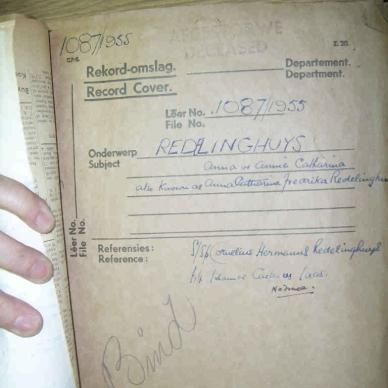 1087/1955
DECEASED
Z.20.
Rekord-omslag.
Record Cover.
Departement.
Department.
Lêer No.
File No. 1087/1955
Onderwerp
Subject
REDELINGHUYS
Anna or Annie Catharina
also known as Anna Catharina Fredrika Redelinghuys
Lêer No.
File No.
Referensies:
Reference:
S/Sp Cornelius Hermanus Redelinghuys
Bind